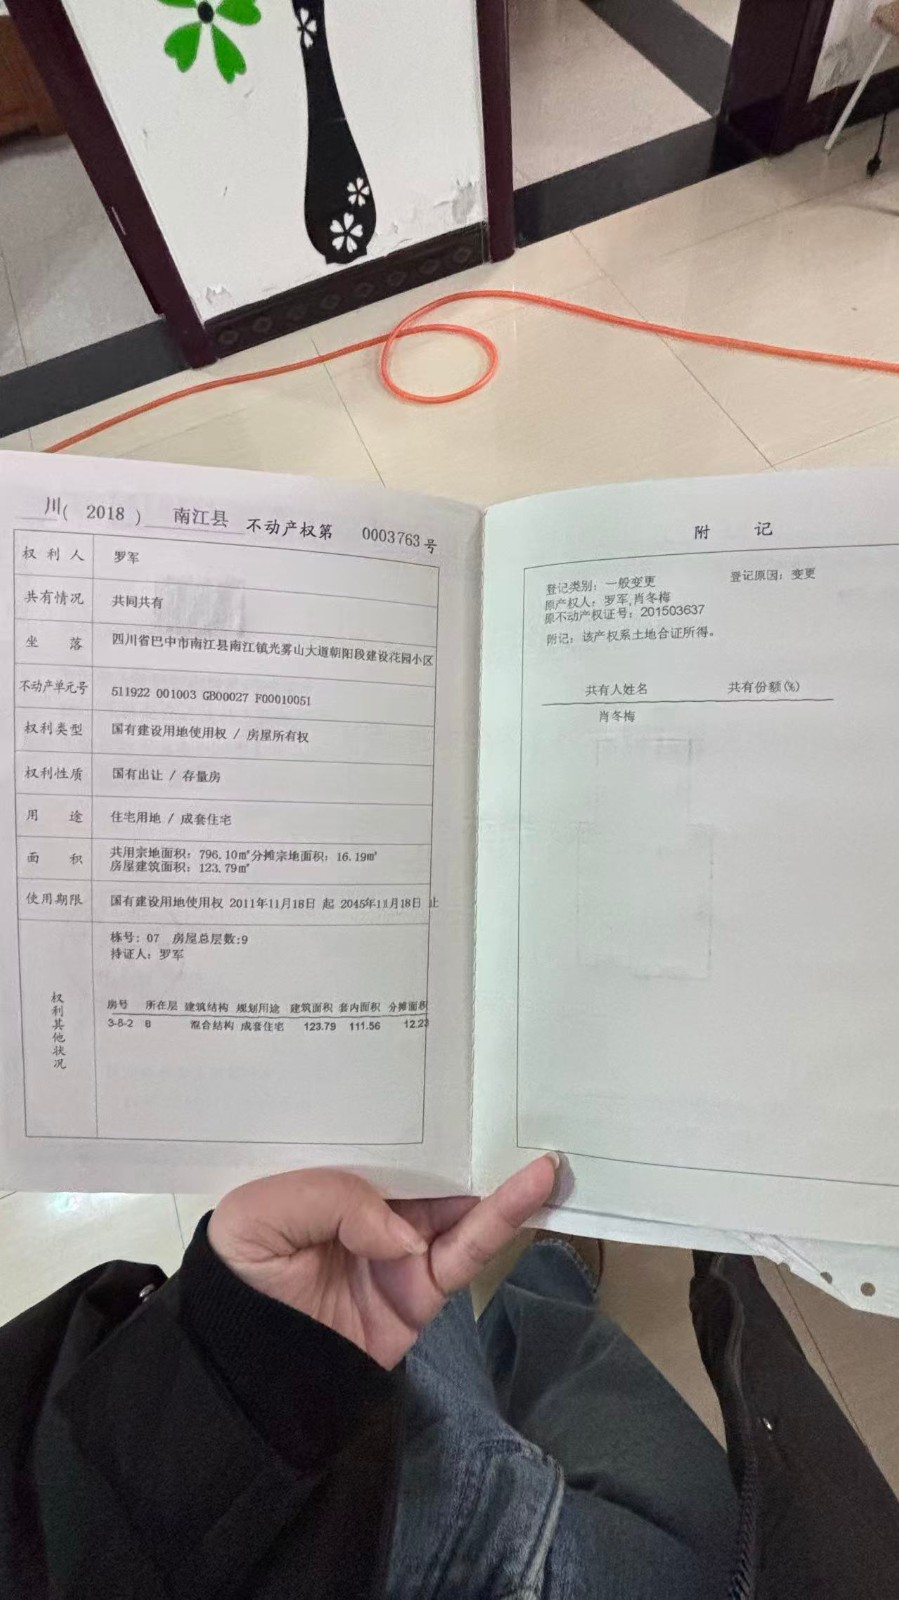 川( 2018 ) 南江县 不动产权第 0003763 号
权利人 罗军
共有情况 共同共有
坐落 四川省巴中市南江县南江镇光雾山大道朝阳段建设花园小区
不动产单元号 511922 001003 GB00027 F00010051
权利类型 国有建设用地使用权 / 房屋所有权
权利性质 国有出让 / 存量房
用途 住宅用地 / 成套住宅
面积 共用宗地面积：796.10㎡分摊宗地面积：16.19㎡
房屋建筑面积：123.79㎡
使用期限 国有建设用地使用权 2011年11月18日 起 2045年11月18日 止
权利其他状况
栋号: 07 房屋总层数:9
持证人：罗军
房号 所在层 建筑结构 规划用途 建筑面积 套内面积 分摊面积
3-8-2 8 混合结构 成套住宅 123.79 111.56 12.23
附记
登记类别：一般变更 登记原因：变更
原产权人：罗军,肖冬梅
原不动产权证号：201503637
附记：该产权系土地合证所得。
共有人姓名 共有份额(%)
肖冬梅